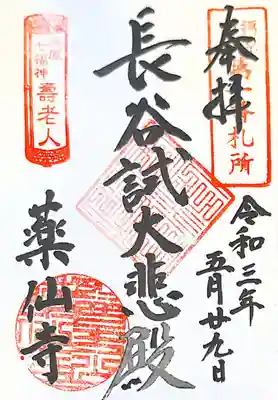 奉拝
札所
令和三年
五月廿九日
長谷試大悲殿
七福神
壽老人
薬仙寺